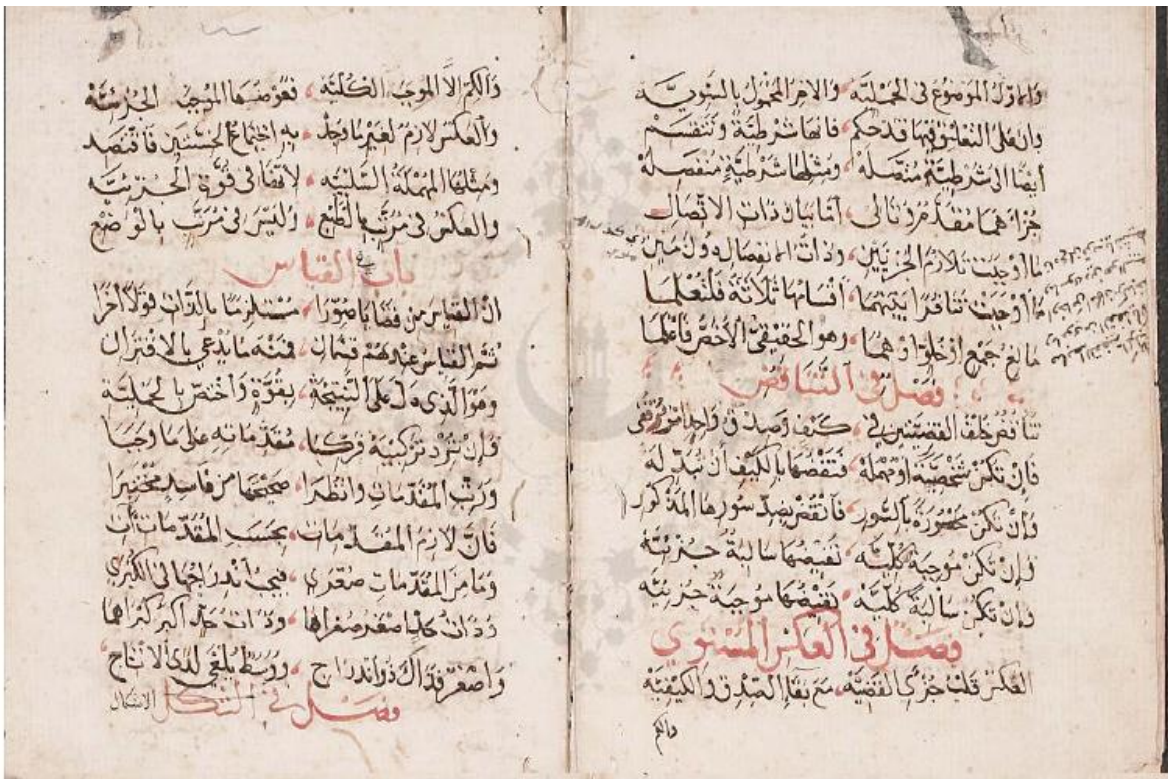 والاول الموضوع في الحمليه والاخر المحمول بالسويـــه
وان على التعليق فيها قد حكم فانها شرطية وتنقسم
ايضا الى شرطية متصله ومثلها شرطية منفصله
جزاهما مقدم وتالي اما بيان ذات الاتصال
ما اوجبت تلازم الجزيين وذات الانفصال دون مين
ما اوجبت تنافرا بينهما اقسامها ثلاثة فلتعلما
مانع جمع او خلو او هما وهو الحقيقي الاخص فاعلما
فصل في التناقض
تناقض خلف القضيتين في كيف وصدق واحد امر قفي
فان تكن شخصية او مهمله فنقضها بالكيف ان تبدله
وان تكن محصورة بالسور فانقض بضد سورها المذكور
وان تكن موجبة كليه نقيضها سالبة جزئيه
وان تكن سالبة كليه نقيضها موجبة جزئيه
فصل في العكس المستوي
العكس قلب جزئي القضيه مع بقاء الصدق والكيفيه
والكم
والكم الا الموجب الكليه فعوضها الموجب الجزئيه
والعكس لازم لغير ما وجد به اجتماع الخستين فاقتصد
ومثلها المهملة السلبيه لانها في قوة الجزئيه
والعكس في مرتب بالطبع وليس في مرتب بالوضع
باب في القياس
ان القياس من قضايا صورا مستلزما بالذات قولا اخرا
ثم القياس عندهم قسمان فمنه ما يدعى بالاقتران
وهو الذي دل على النتيجة بقوة واختص بالحمليه
فان ترد تركيبه فركبا مقدماته على ما وجبا
ورتب المقدمات وانظرا صحيحها من فاسد مختبرا
فان لازم المقدمات بحسب المقدمات آت
وما من المقدمات صغرى فيجب اندراجها في الكبرى
وذات حد اصغر صغراهما وذات حد اكبر كبراهما
واصغر فذاك ذو اندراج ووسط يلغى لدى الانتاج
فصل في الشكل الاشكال